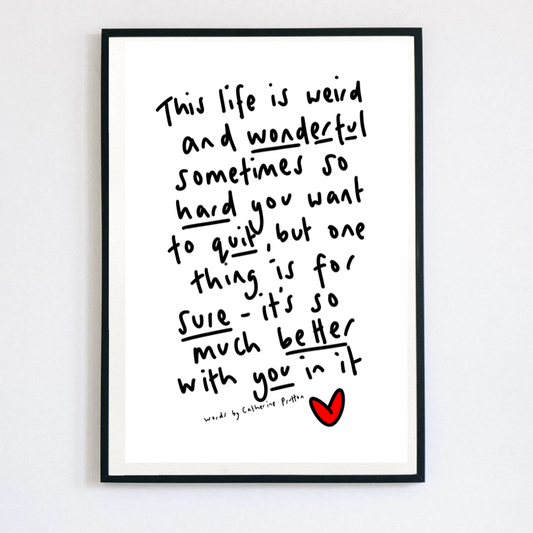 This life is weird
and wonderful
sometimes so
hard you want
to quit, but one
thing is for
sure - it's so
much better
with you in it
words by Catherine Prutton